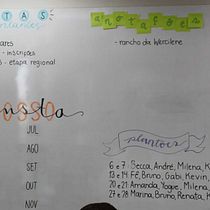 TAS
anotações
ares
- inscrições
- etapa regional
- rancho da Wercilene
OSSO
JUL
AGO
SET
OUT
NOV
plantões
6 e 7 Secca, André, Milena, K
13 e 14 Fé, Bruno, Gabi, Kevin,
20 e 21 Amanda, Yaque, Milena
27 e 28 Marina, Bruno, Renata, K